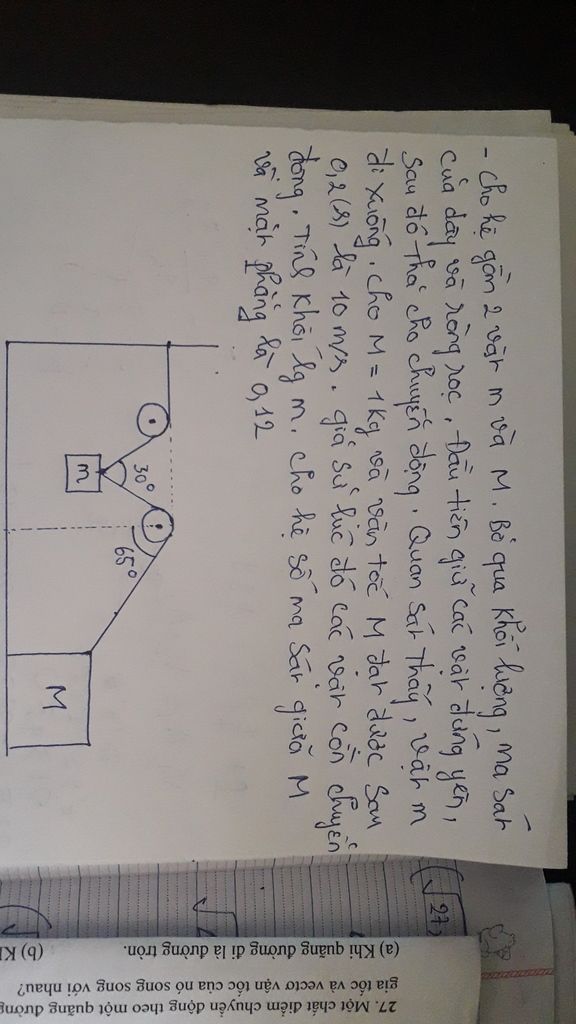 - Cho hệ gồm 2 vật m và M. Bỏ qua khối lượng, ma sát
của dây và ròng rọc. Đầu tiên giữ các vật đứng yên,
sau đó thả cho chuyển động. Quan sát thấy, vật m
đi xuống. Cho M = 1kg và vận tốc M đạt được sau
0,2(s) là 10 m/s. giả sử lúc đó các vật còn chuyển
động. Tính khối lg m. cho hệ số ma sát giữa M
và mặt phẳng là 0,12
30°
m
65°
M
√27,
(a) Khi quãng đường đi là đường tròn.
(b) Kh
gia tốc và vectơ vận tốc của nó song song với nhau?
27. Một chất điểm chuyển động theo một quãng đường